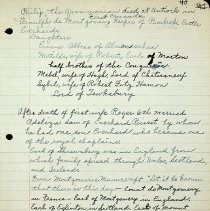 Philip, the Grammarian died at Antioch in
First Crusade
Arnulph de Montgomery Keeper of Pembroke Castle
Everhard
Daughters
Emma Abbess of Almenesches
Matilda, wife of Robert, Earl of Morton
half brother of the Conqueror
Mabel, wife of Hugh, Lord of Chateauneuf
Sybil, wife of Robert Fitz Hamon
Lord of Tewksbury
After death of first wife Roger 6th married
Adelays dau of Everard Puiset by whom
he had one son Everhard who became one
of the royal chaplains
Earl of Shrewsbury was in England from
which family spread through Wales, Scotland,
and Ireland
From Montgomerie Manuscript "Let it be known
that there is this day— Count de Montgomery
in France - Earl of Montgomery in England,
Earl of Eglinton in Scotland, Earl of Mount